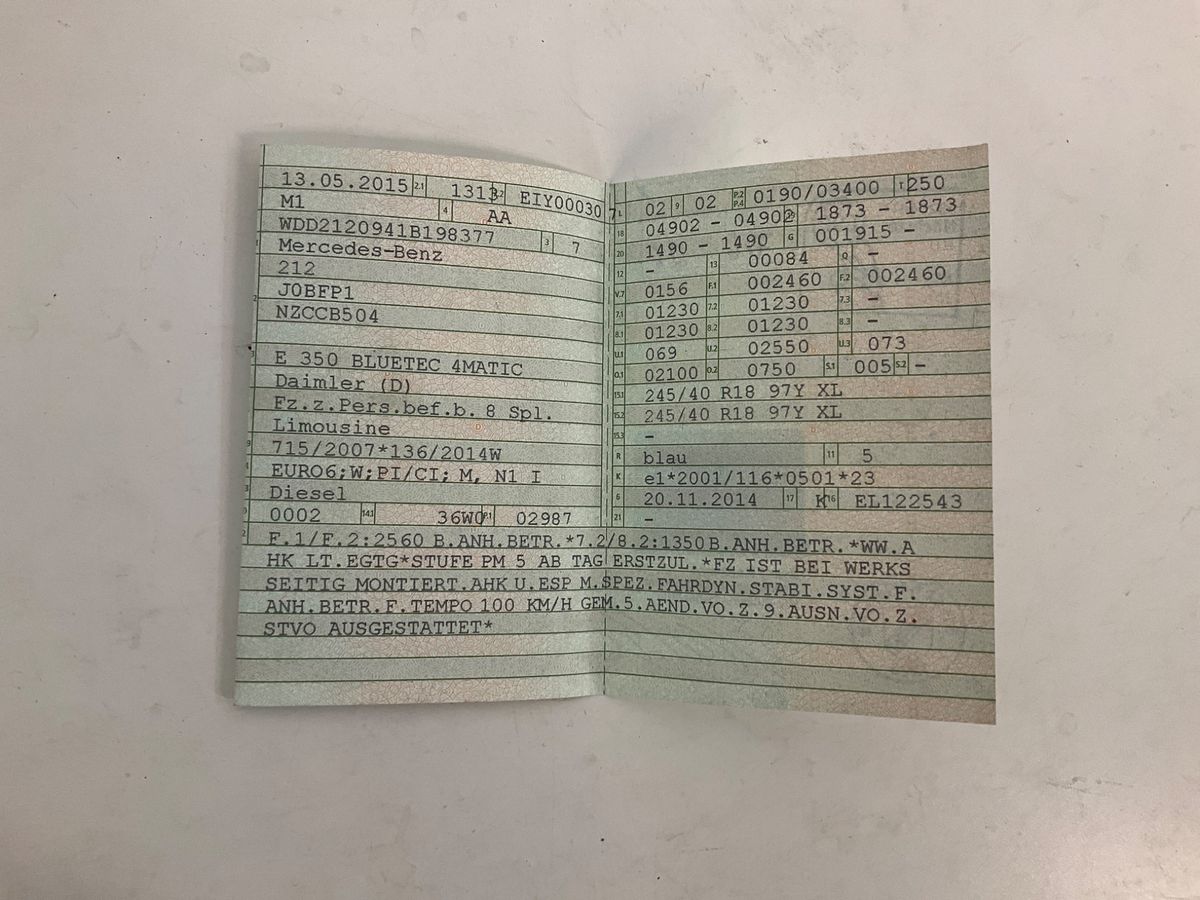 13.05.2015 2.1 1313 2.2 EIY00030 7
M1 4 AA
WDD2120941B198377 3 7
Mercedes-Benz
212
J0BFP1
NZCCB504
E 350 BLUETEC 4MATIC
Daimler (D)
Fz.z.Pers.bef.b. 8 Spl.
Limousine
715/2007*136/2014W
EURO6;W;PI/CI; M, N1 I
Diesel
0002 14.1 36W0 P.1 02987
L 02 9 02 P.2 P.4 0190/03400 T 250
18 04902 - 04902 19 1873 - 1873
20 1490 - 1490 G 001915 -
12 - 13 00084 Q -
V.7 0156 F.1 002460 F.2 002460
7.1 01230 7.2 01230 7.3 -
8.1 01230 8.2 01230 8.3 -
U.1 069 U.2 02550 U.3 073
O.1 02100 O.2 0750 S.1 005 S.2 -
15.1 245/40 R18 97Y XL
15.2 245/40 R18 97Y XL
15.3 -
R blau 11 5
K e1*2001/116*0501*23
6 20.11.2014 17 K 16 EL122543
21 -
F.1/F.2:2560 B.ANH.BETR.*7.2/8.2:1350 B.ANH.BETR.*WW.A
HK LT.EGTG*STUFE PM 5 AB TAG ERSTZUL.*FZ IST BEI WERKS
SEITIG MONTIERT.AHK U.ESP M.SPEZ.FAHRDYN.STABI.SYST.F.
ANH.BETR.F.TEMPO 100 KM/H GEM.5.AEND.VO.Z.9.AUSN.VO.Z.
STVO AUSGESTATTET*